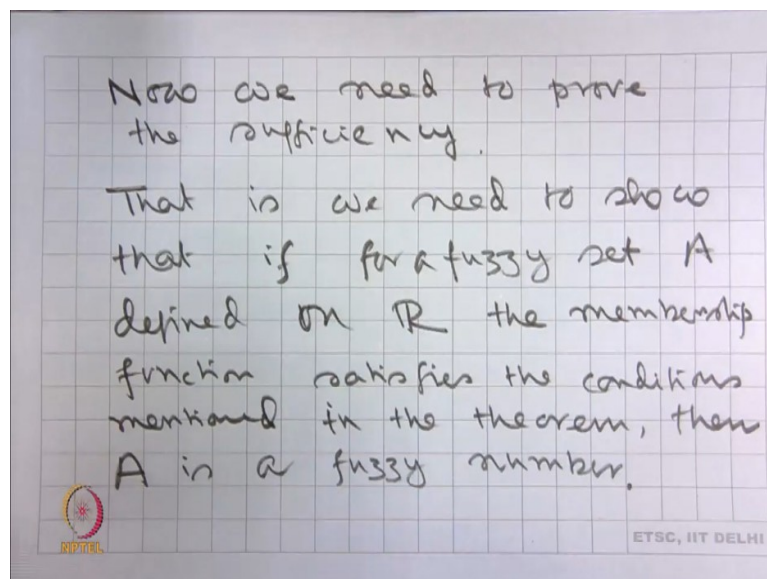 Now we need to prove
the sufficiency.
That is we need to show
that if for a fuzzy set A
defined on ℝ the membership
function satisfies the conditions
mentioned in the theorem, then
A is a fuzzy number.
NPTEL
ETSC, IIT DELHI